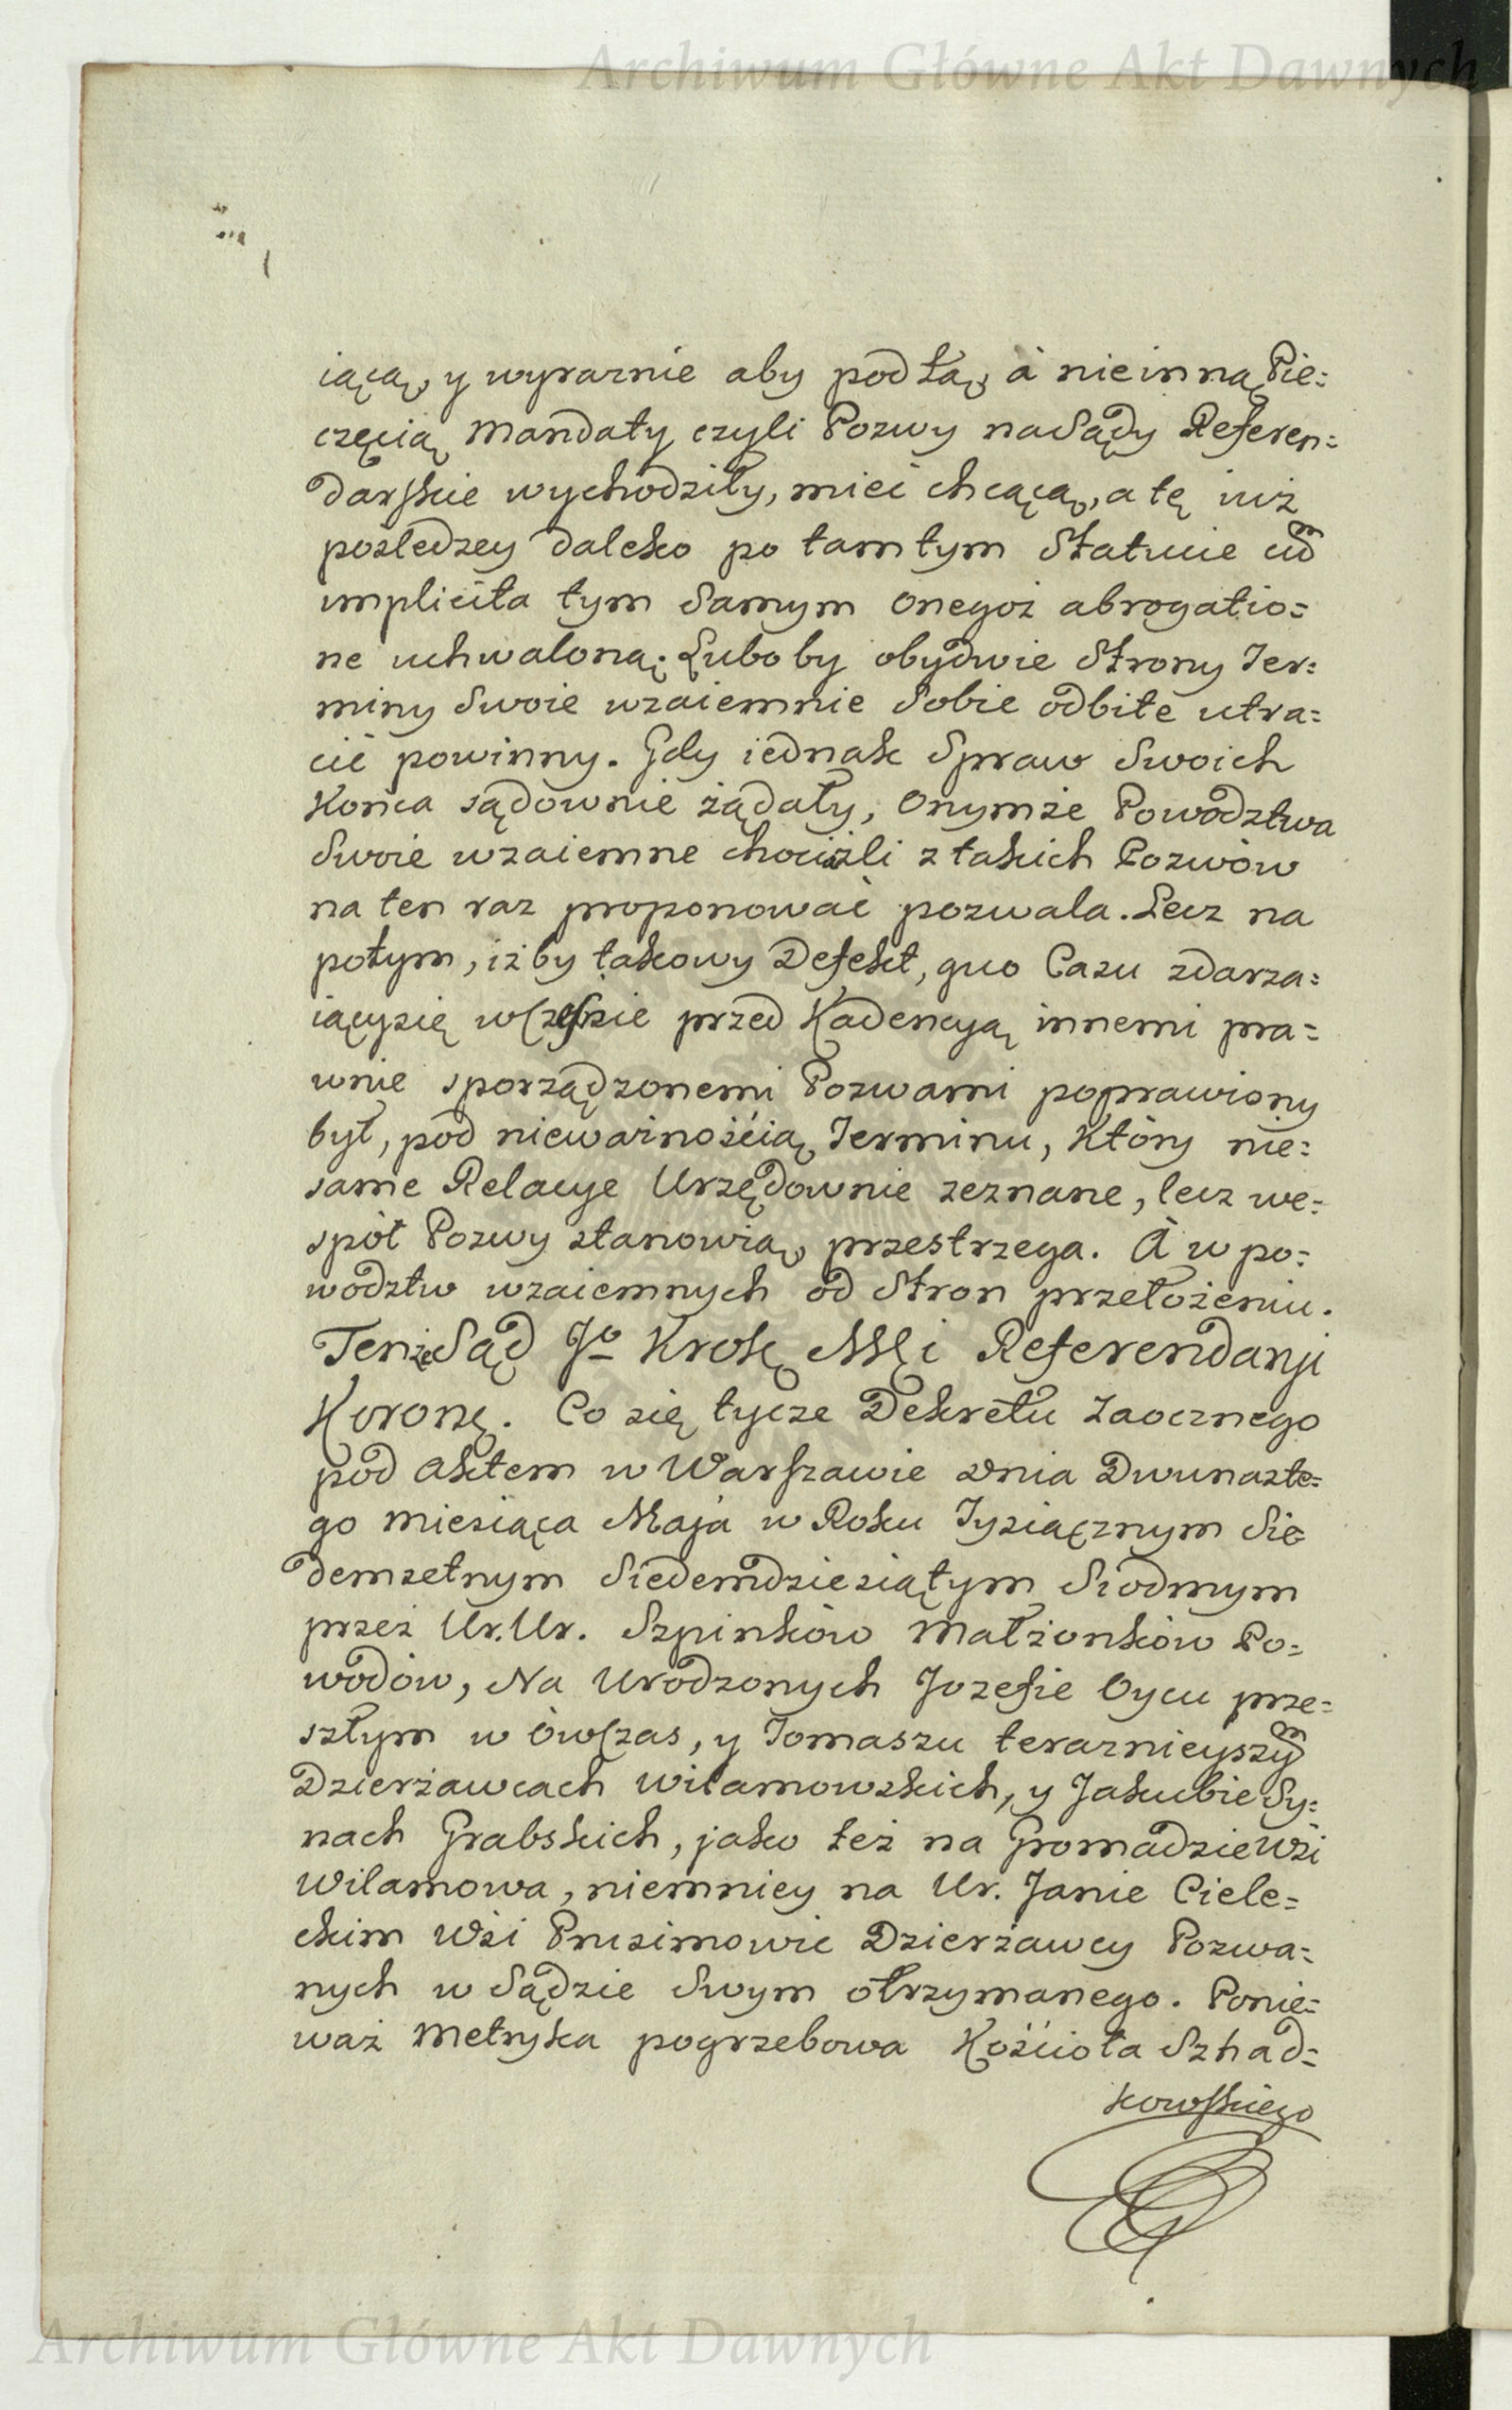 Archiwum Główne Akt Dawnych
iącą, y wyraznie aby pod tą, á nie inną Pie=
częcią Mandaty czyli Pozwy na Sądy Referen=
darskie wychodziły, mieć chcącą, a tę iuż
posledzey daleko po tamtym Statucie cum
implicita tym Samym onegoż abrogatio=
ne uchwaloną. Luboby obydwie Strony Ter=
miny Swoie wzaiemnie Sobie odbite utra=
cić powinny. Gdy iednak Spraw Swoich
Końca sądownie żądały, Onymże Powodztwa
Swoie wzaiemne chociażli z takich Pozwów
na ten raz proponować pozwala. Lecz na
potym, iżby takowy Defekt, quo Casu zdarza=
iącysię wcześnie przed Kadencyą innemi pra=
wnie sporządzonemi Pozwami poprawiony
był, pod nieważnością Terminu, który nie=
same Relacye Urzędownie zeznane, lecz we=
spół Pozwy stanowią, przestrzega. À w po=
wodztw wzaiemnych od Stron przełożeniu.
Tenże Sąd Jo Krolę Mci Referendarji
Koronę. Co się tycze Dekretu Zaocznego
pod Aktem w Warszawie dnia Dwunaste=
go miesiąca Maja w Roku Tysiącznym Sie
demsetnym Siedemdziesiątym Siodmym
przez Ur. Ur. Szpinków Małżonków Po=
wodów, Na Urodzonych Jozefie Oycu prze=
szłym w ówczas, y Tomaszu teraznieyszym
Dzierżawcach Wilamowskich, y Jakubie Sy=
nach Grabskich, jako też na Gromadzie Wsi
Wilamowa, niemniey na Ur. Janie Ciele=
ckim Wsi Prusimowic Dzierżawcy Pozwa=
nych w Sądzie Swym otrzymanego. Ponie=
waż Metryka pogrzebowa Kościoła Szhad=
kowskiego
Archiwum Główne Akt Dawnych